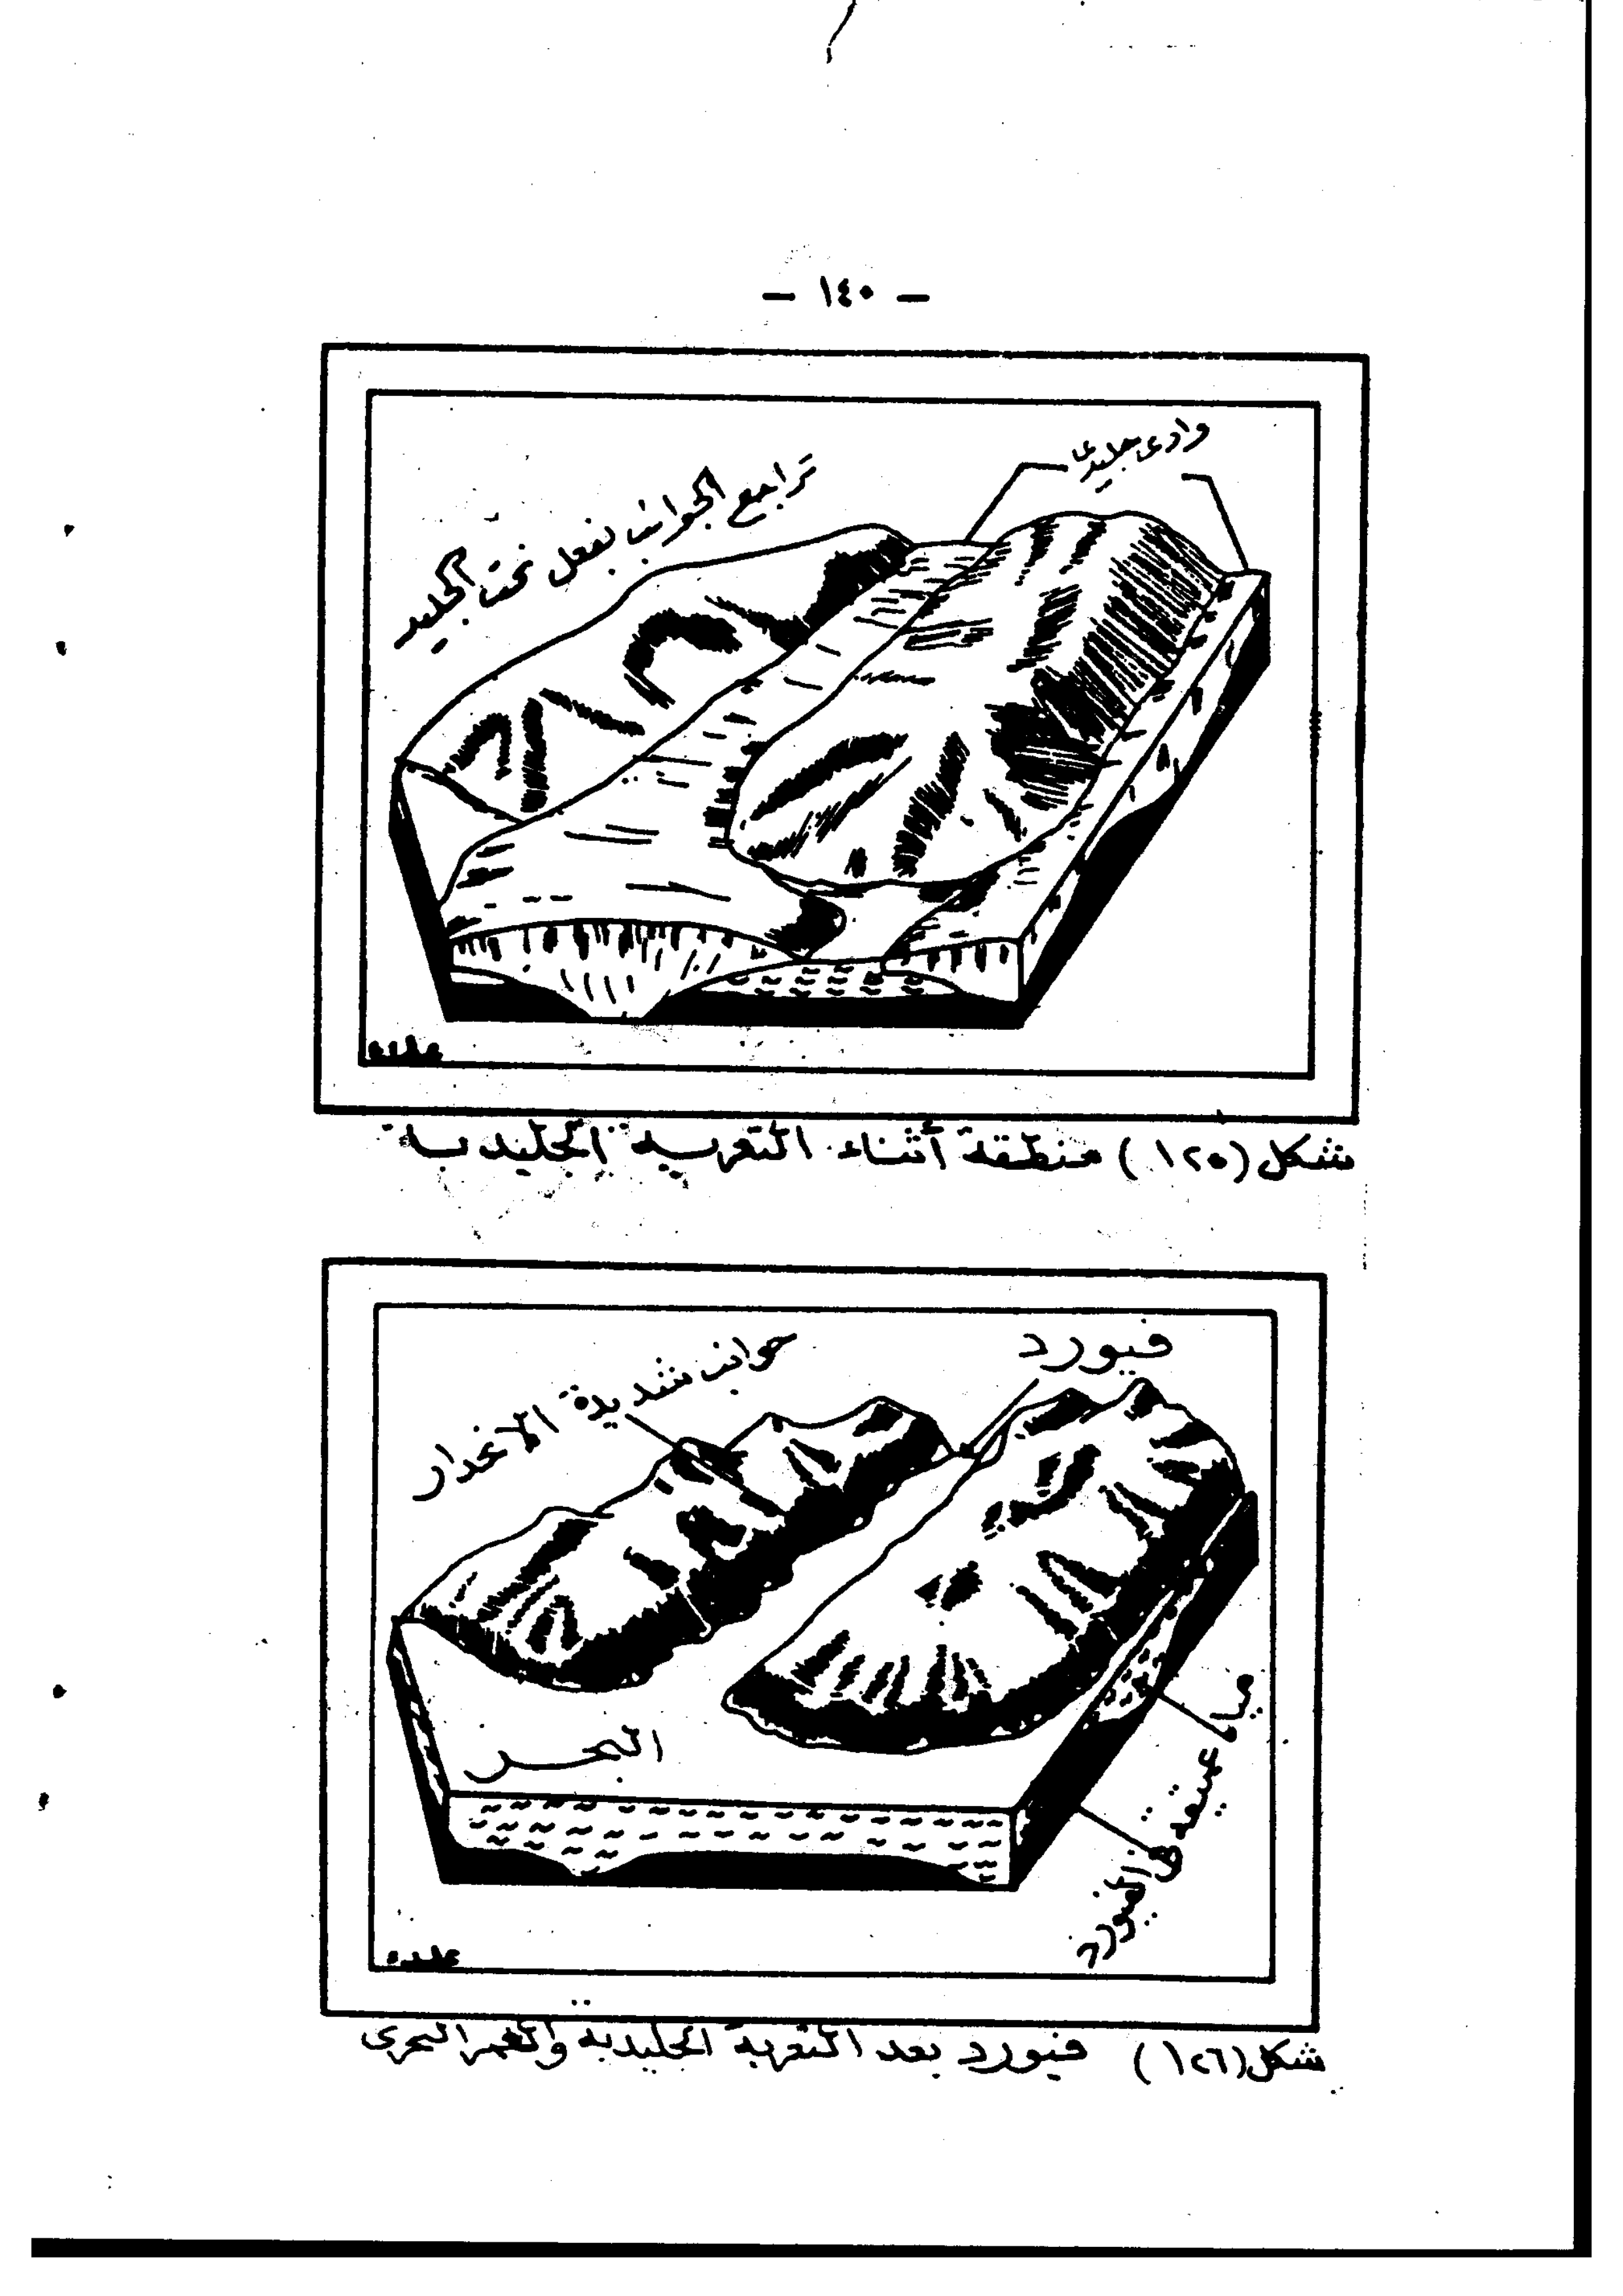 — ١٤٠ —
وادى جليدى
تراجع الجوانب بفعل نحت الجليد
شكل (١٢٥) منطقة أثناء التعرية الجليدية
فيورد
جوانب شديدة الانحدار
البحر
مياه عميقة فى الفيورد
شكل (١٢٦) فيورد بعد التعرية الجليدية والغمر البحرى